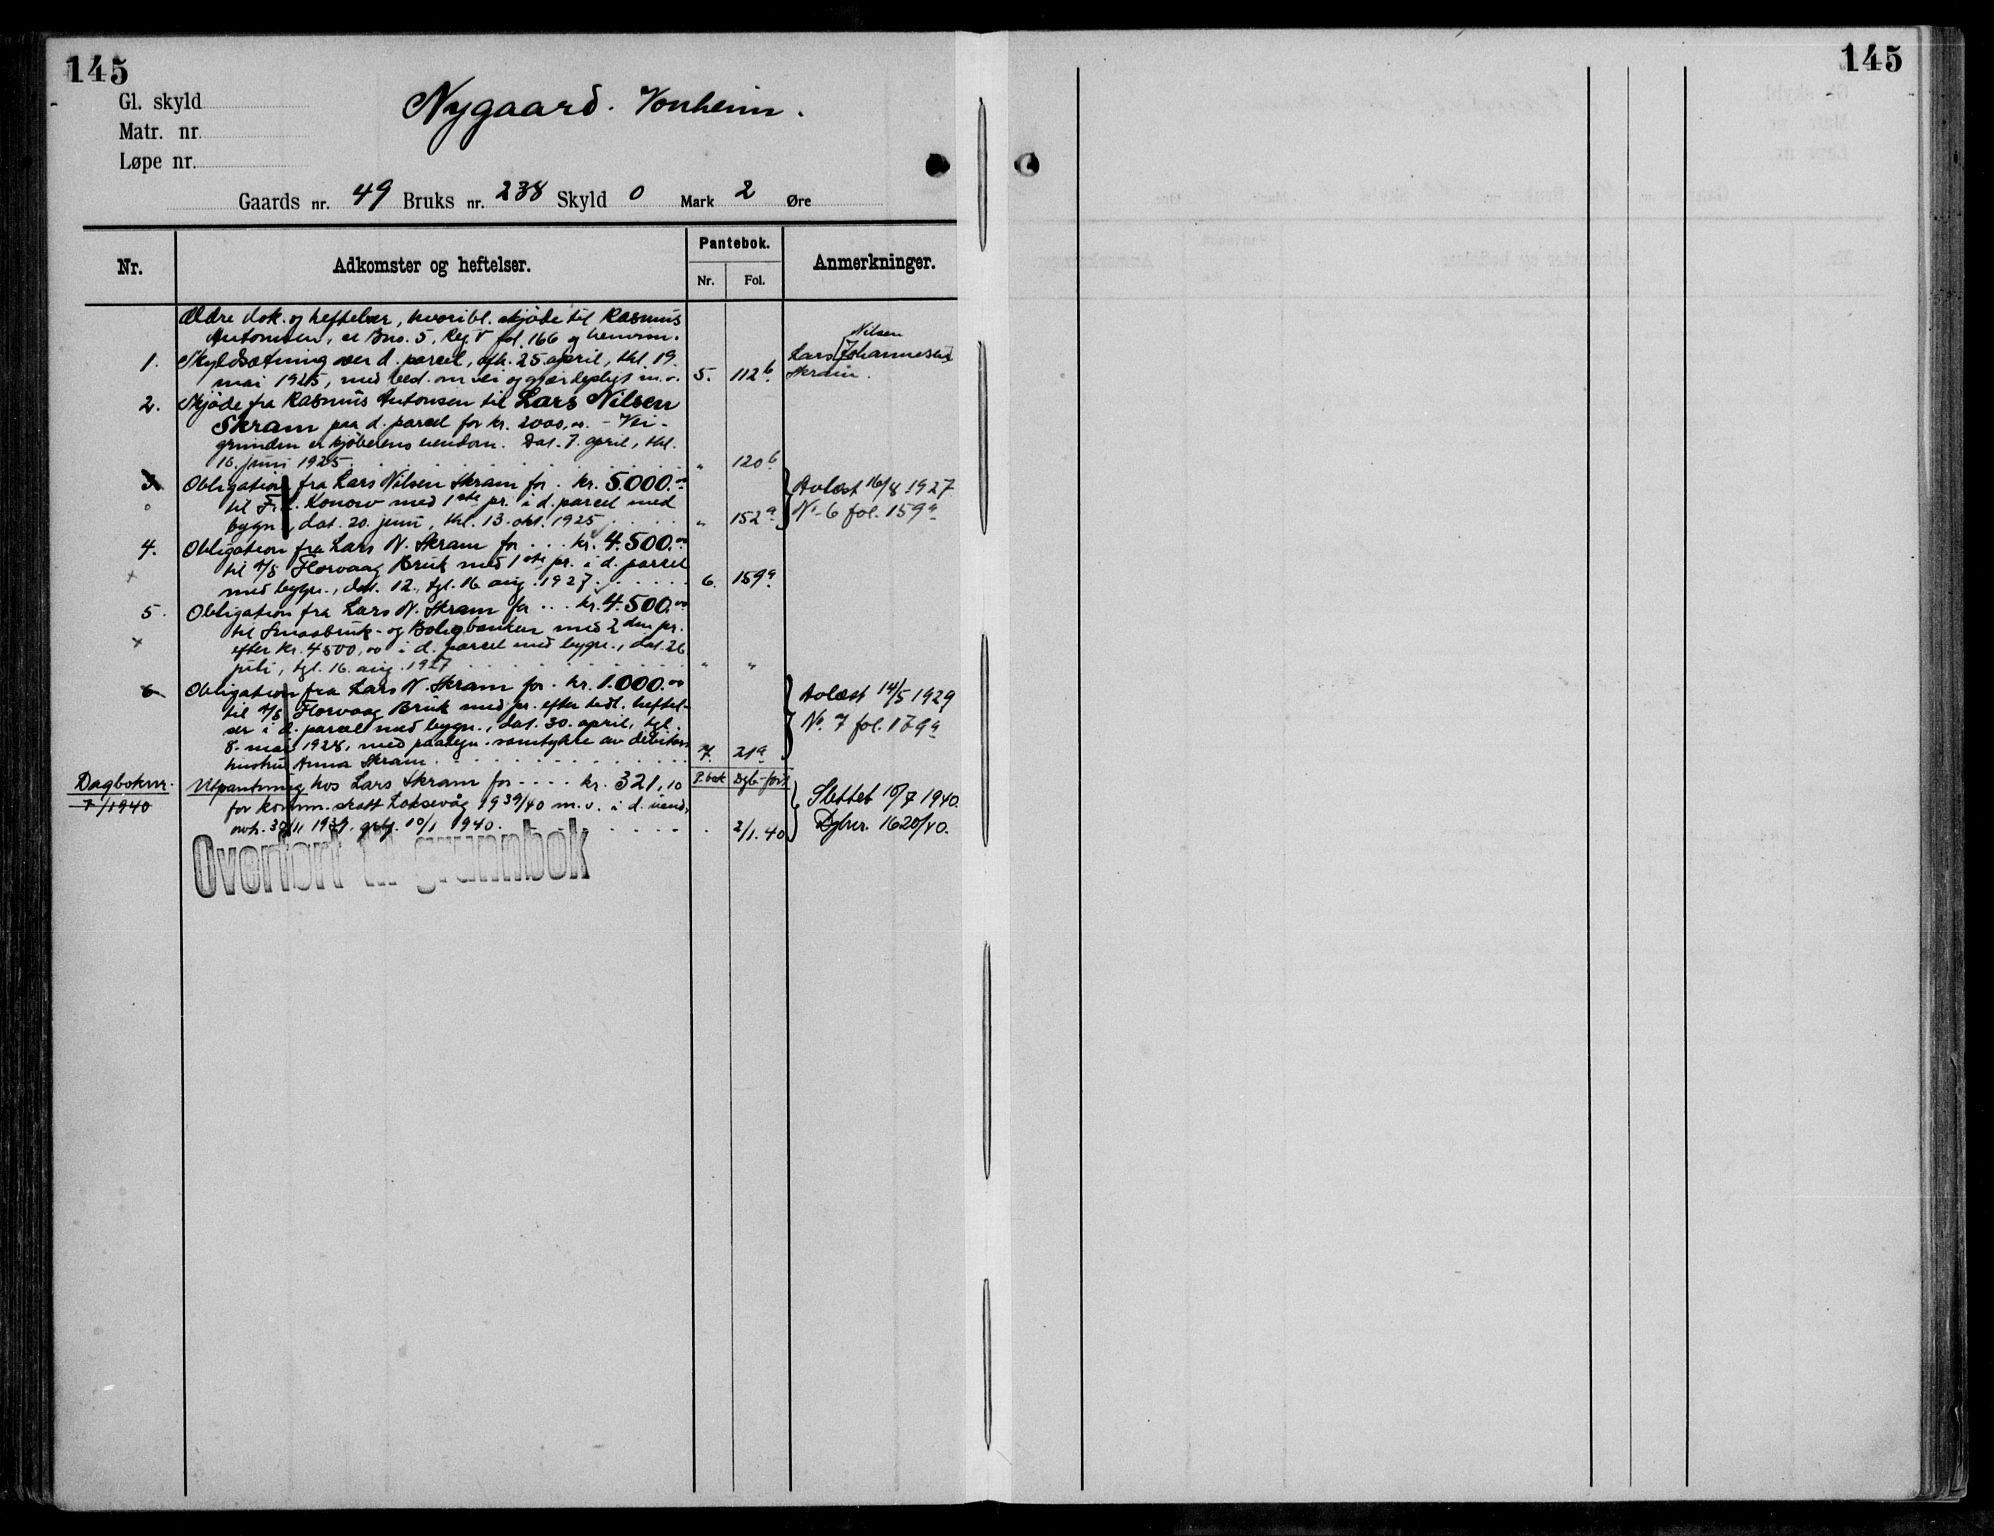 145
145
Gl. skyld
Matr. nr.
Løpe nr.
Nygaard. Vonheim.
Gaards nr. 49 Bruks nr. 238 Skyld 0 Mark 2 Øre
Nr. Adkomster og heftelser. Pantebok. Anmerkninger.
Nr. Fol.
Ældre dok. og heftelser, hvoribl. skjøde til Rasmus
Antonsen, se Bno. 5, Reg. V fol. 166 og henvisn.
1. Skyldsætning over d. parcel, afh. 25 april, thl. 19.
mai 1925, med best. om vei og gjærdepligt m.v. 5. 112b
Nilsen
Lars [Johannesen]
Skram.
2. Skjøde fra Rasmus Antonsen til Lars Nilsen
Skram paa d. parcel for kr. 2000,00. - Vei-
grunden er kjøberens eiendom. Dat. 7. april, thl.
16. juni 1925 " 120b
3. Obligation fra Lars Nilsen Skram for kr. 5.000.00
til Fr. Konow med 1ste pr. i d. parcel med
bygn., dat. 20. juni, thl. 13. okt. 1925 " 152a
Avlæst 16/8 1927
No. 6 fol. 159a
4. Obligation fra Lars N. Skram for kr. 4.500.00
til A/S Florvaag Bruk med 1ste pr. i d. parcel
med bygn., dat. 12., tgl. 16 aug. 1927. 6. 159a
5. Obligation fra Lars N. Skram for kr. 4.500.00
til Smaabruk- og Boligbanken med 2den pr.
efter kr. 4500,00 i d. parcel med bygn., dat. 26
juli, tgl. 16. aug. 1927 " "
6. Obligation fra Lars N. Skram for kr. 1.000.00
til A/S Florvaag Bruk med pr. efter tidl. heftel-
ser i d. parcel med bygn., dat. 30. april, tgl.
8. mai 1928, med paategn. samtykke av debitors
hustru Anna Skram. 7. 21a
Avlæst 14/5 1929
No. 7 fol. 179a
Dagboknr. P.bok Dgb-ført
7/1940 Utpantning hos Lars Skram for kr. 321,10
for komm. skatt Laksevåg 1939/40 m.v. i d. eiend.,
avh. 30/11 1939, gebg. 10/1 1940. 2/1. 40
Slettet 10/7 1940.
Dgbnr. 1620/40.
Overført til grunnbok